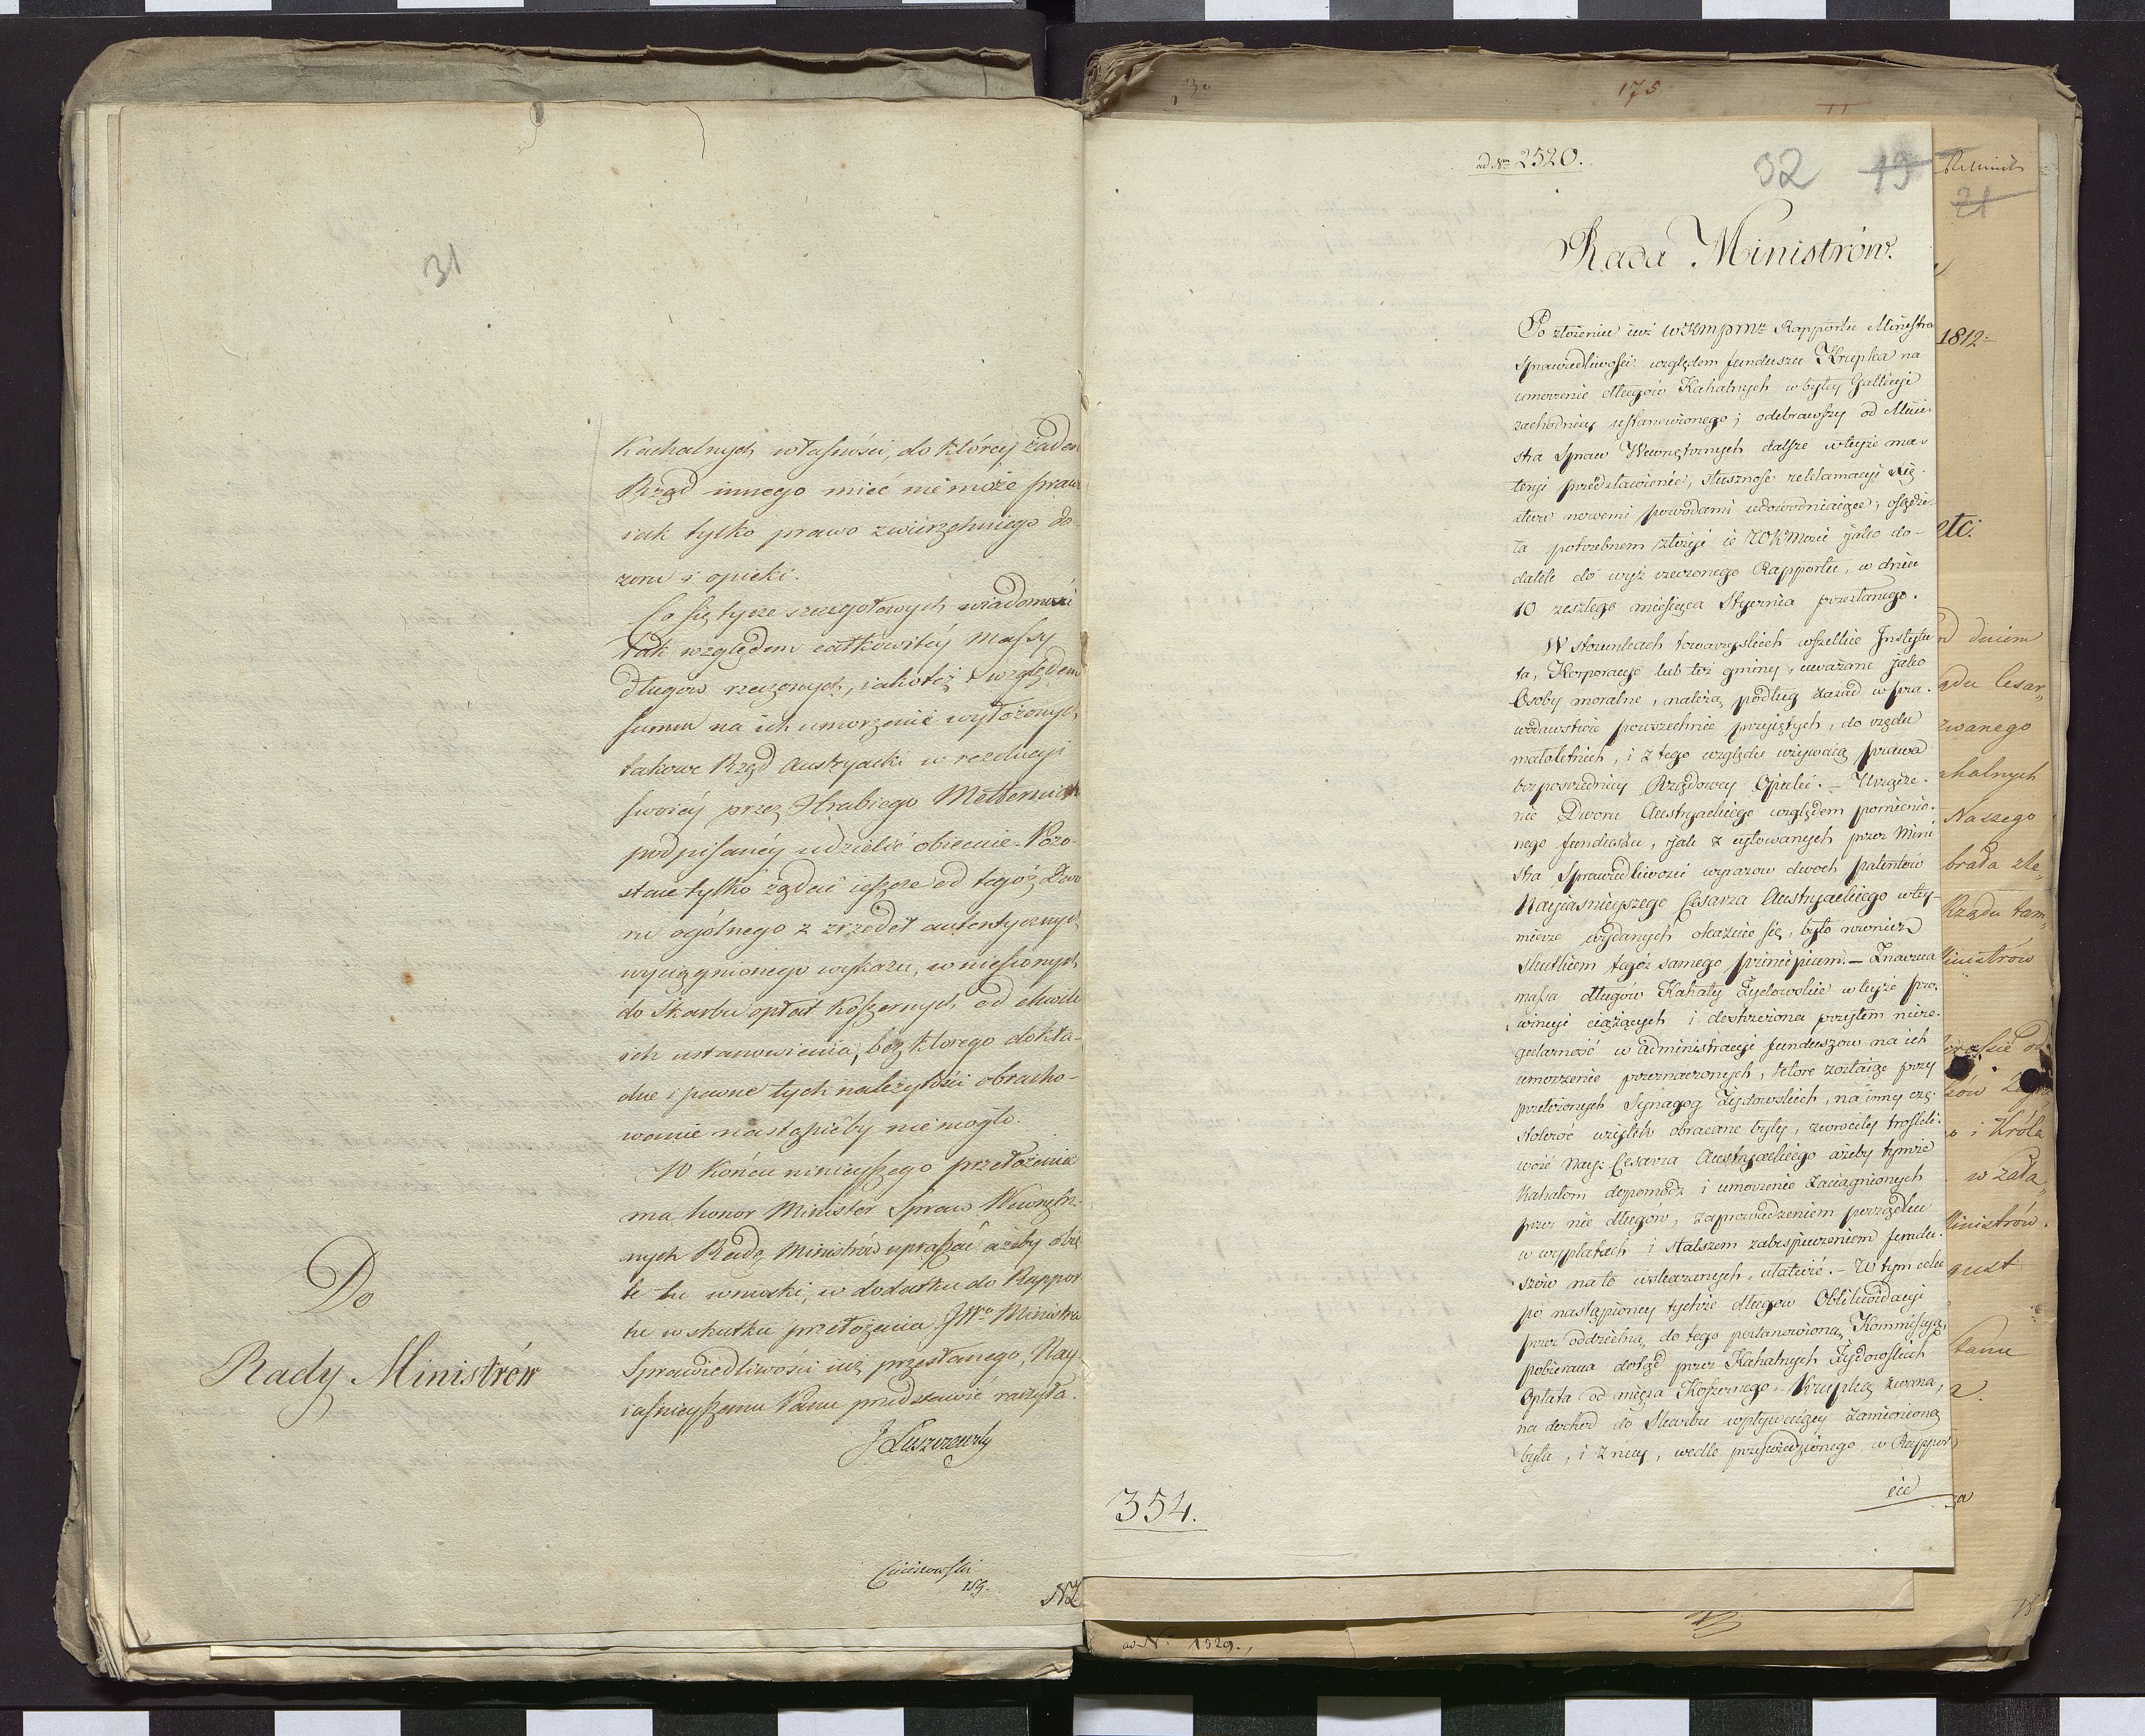 31
Kachalnych własności, do którey żaden
Rząd innego mieć nie może prawa
iak tylko prawo zwierzchniego do-
zoru i opieki.
Co się tycze szczegołowych wiadomości
tak względem całkowitéy Massy
długow rzeczonych, iakotéż i względem
summ na ich umorzenie wyłożonych
takowe Rząd Austryacki w rezolucyi
swoiéy przez Hrabiego Metternich
podpisanéy udzielić obiecuie. Pozo-
staie tylko żądać ieszcze od tegoż Dwo
ru ogólnego z zrzodeł autentycznych
wyciągnionego wykazu, wniesionych
do Skarbu opłat Koszernych od chwili
ich ustanowienia, bez którego dokła-
dne i pewne tych należytości obracho-
wanie nastąpićby nie mogło.
W Końcu ninieyszego przełożenia
ma honor Minister Spraw Wewnętrz-
nych Radę Ministrów upraszać ażeby obię
te tu wnioski, w dodatku do Rappor
tu w skutku przełożenia JWo Ministra
Sprawiedliwości iuż przesłanego, Nay
iaśnieyszemu Panu przedstawić raczyła.
J Łuszczewsky
Do
Rady Ministrów
NZ
175
ad Nrm 2520.
32 19
Rada Ministrów.
Po złożeniu iuż WKmprmz Rapportu Ministra
Sprawiedliwości względem funduszu Krupka na
umorzenie długów Kahalnych w byłey Gallicyi
zachodniey ustanowionego; odebrawszy od Mini-
stra Spraw Wewnętrznych dalsze w teyże ma-
teryi przedstawienie, słuszność reklamacyi Xię-
stwa nowemi powodami udowodniaiące; osądzi-
ła potrzebnem złożyć ie WKMości jako do-
datek do wyż rzeczonego Rapportu, w dniu
10 zeszłego miesiąca Stycznia przesłanego.
W stosunkach towarzyskich wszelkie Instytu
ta, Korporacye lub też gminy, uważane jako
Osoby moralne, należą podług zasad w pra-
wodawstwie powszechnie przyiętych, do rzędu
małoletnich, i z tego względu używaią prawa
bezpośredniey Rządowey Opieki. – Urządze-
nie Dworu Austryackiego względem pomienio-
nego funduszu, jak z cytowanych przez Mini
stra Sprawiedliwości wyrazow dwoch patentów
Nayiaśnieyszego Cesarza Austryackiego w tey-
mierze wydanych okazuie się, było rownież
skutkiem tegoż samego principium. – Znaczna
massa długów Kahały Żydowskie w teyże pro-
wincyi ciążących i dostrzeżona przytem niere-
gularność w administracyi funduszow na ich
umorzenie przeznaczonych, które zostaiąc przy
przełożonych Synagog Żydowskich, na inny czę-
stokroć użytek obracane były, zwrociły troskli-
wość Nayj. Cesarza Austryackiego ażeby tymże
Kahałom dopomódz i umorzenie zaciągnionych
przez nie długów, zaprowadzeniem porządku
w wypłatach i stalszem zabezpieczeniem fundu-
szów na to wskazanych, ułatwić. – W tym celu
po nastąpioney tychże długow Oblikwidacyi
przez oddzielną do tego postanowioną Kommissyą,
pobierana dotąd przez Kahalnych Żydowskich
Opłata od mięsa Koszernego, Krupką zwana,
na dochod do Skarbu wpływaiący zamieniona
była, i z niey, wedle przyświedzionego w Rappor
cie
354.
ad No 1529.
21
1812.
etc:
dniem
ądu Cesar„
zwanego
ahalnych
Naszego
brała zle„
Rządu tam„
Ministrow
i Króla
w Zała„
Ministrów.
gust
Stanu